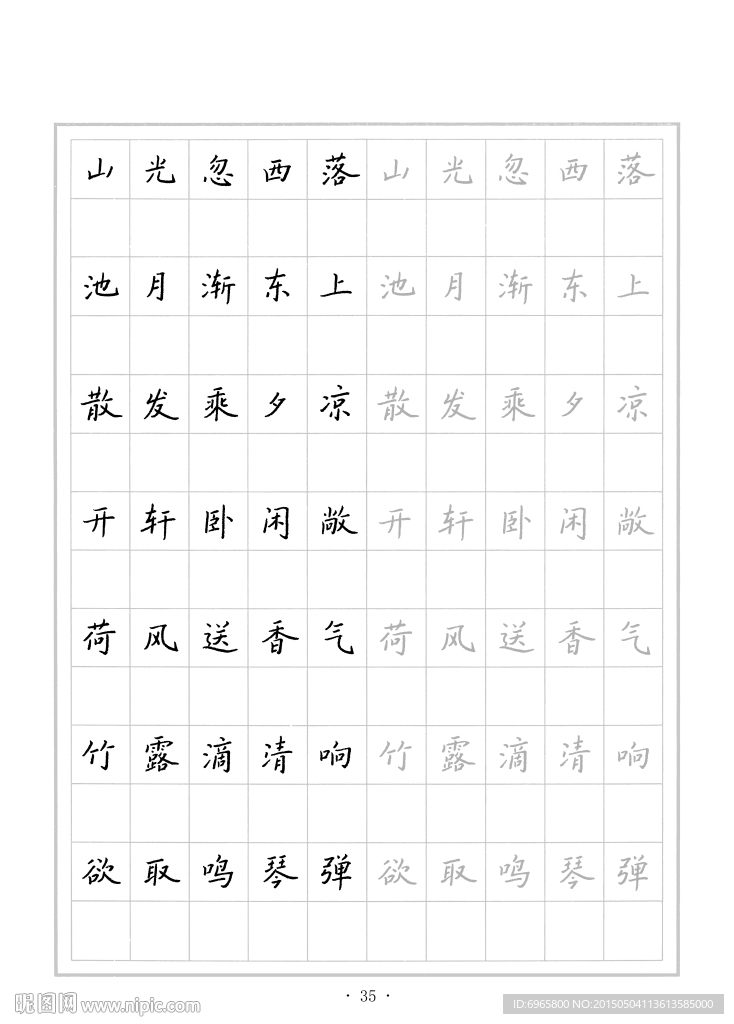 山光忽西落山光忽西落
池月渐东上池月渐东上
散发乘夕凉散发乘夕凉
开轩卧闲敞开轩卧闲敞
荷风送香气荷风送香气
竹露滴清响竹露滴清响
欲取鸣琴弹欲取鸣琴弹
· 35 ·
昵图网 www.nipic.com
ID:6965800 NO:20150504113613585000